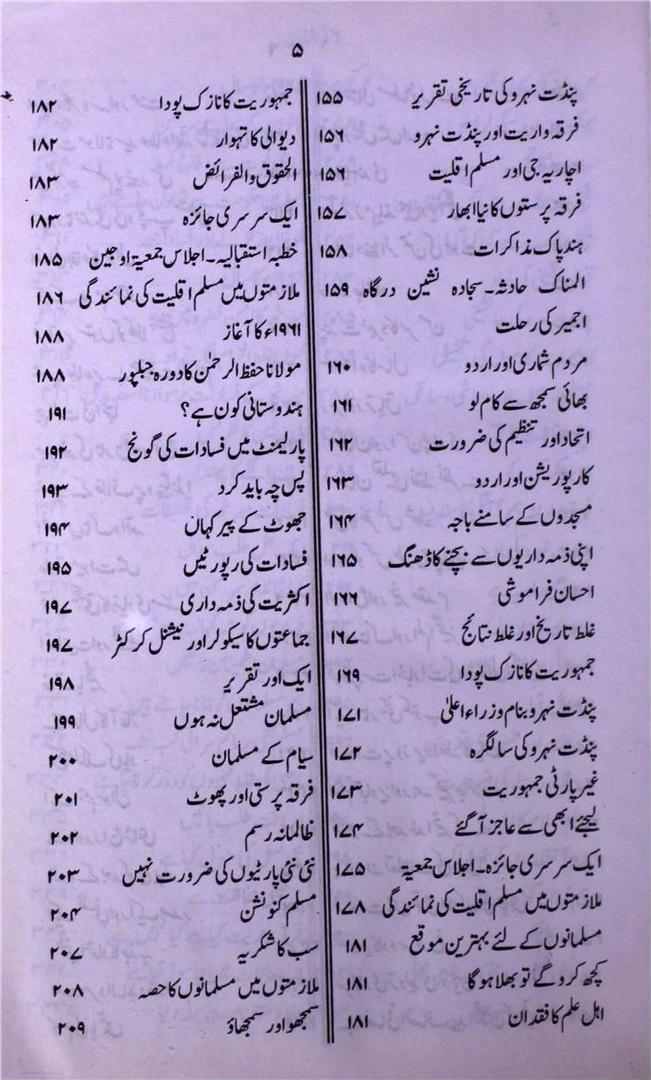 ۵
پنڈت نہرو کی تاریخی تقریر ۱۵۵
فرقہ واریت اور پنڈت نہرو ۱۵۶
اچاریہ جی اور مسلم اقلیت ۱۵۶
فرقہ پرستوں کا نیا ابھار ۱۵۷
ہند پاک مذاکرات ۱۵۸
المناک حادثہ۔ سجادہ نشین درگاہ ۱۵۹
اجمیر کی رحلت
مردم شماری اور اردو ۱۶۰
بھائی سمجھ سے کام لو ۱۶۱
اتحاد اور تنظیم کی ضرورت ۱۶۲
کارپوریشن اور اردو ۱۶۳
مسجدوں کے سامنے باجہ ۱۶۴
اپنی ذمہ داریوں سے بچنے کا ڈھنگ ۱۶۵
احسان فراموشی ۱۶۶
غلط تاریخ اور غلط نتائج ۱۶۷
جمہوریت کا نازک پودا ۱۶۹
پنڈت نہرو بنام وزراء اعلیٰ ۱۷۱
پنڈت نہرو کی سالگرہ ۱۷۲
غیر پارٹی جمہوریت ۱۷۳
لیجئے ابھی سے عاجز آ گئے ۱۷۴
ایک سرسری جائزہ۔ اجلاس جمعیۃ ۱۷۵
ملازمتوں میں مسلم اقلیت کی نمائندگی ۱۷۸
مسلمانوں کے لئے بہترین موقع ۱۸۱
کچھ کرو گے تو بھلا ہوگا ۱۸۱
اہل علم کا فقدان ۱۸۱
جمہوریت کا نازک پودا ۱۸۲
دیوالی کا تہوار ۱۸۲
الحقوق والفرائض ۱۸۳
ایک سرسری جائزہ ۱۸۳
خطبہ استقبالیہ۔ اجلاس جمعیۃ اوجین ۱۸۵
ملازمتوں میں مسلم اقلیت کی نمائندگی ۱۸۶
۱۹۶۱ء کا آغاز ۱۸۸
مولانا حفظ الرحمٰن کا دورہ جبلپور ۱۸۸
ہندوستانی کون ہے؟ ۱۹۱
پارلیمنٹ میں فسادات کی گونج ۱۹۲
پس چہ باید کرد ۱۹۳
جھوٹ کے پیر کہاں ۱۹۴
فسادات کی رپورٹیں ۱۹۵
اکثریت کی ذمہ داری ۱۹۷
جماعتوں کا سیکولر اور نیشنل کرکٹر ۱۹۷
ایک اور تقریر ۱۹۸
مسلمان مشتعل نہ ہوں ۱۹۹
سیام کے مسلمان ۲۰۰
فرقہ پرستی اور پھوٹ ۲۰۱
ظالمانہ رسم ۲۰۲
نئی نئی پارٹیوں کی ضرورت نہیں ۲۰۳
مسلم کنونشن ۲۰۴
سب کا شکریہ ۲۰۷
ملازمتوں میں مسلمانوں کا حصہ ۲۰۸
سمجھو اور سمجھاؤ ۲۰۹